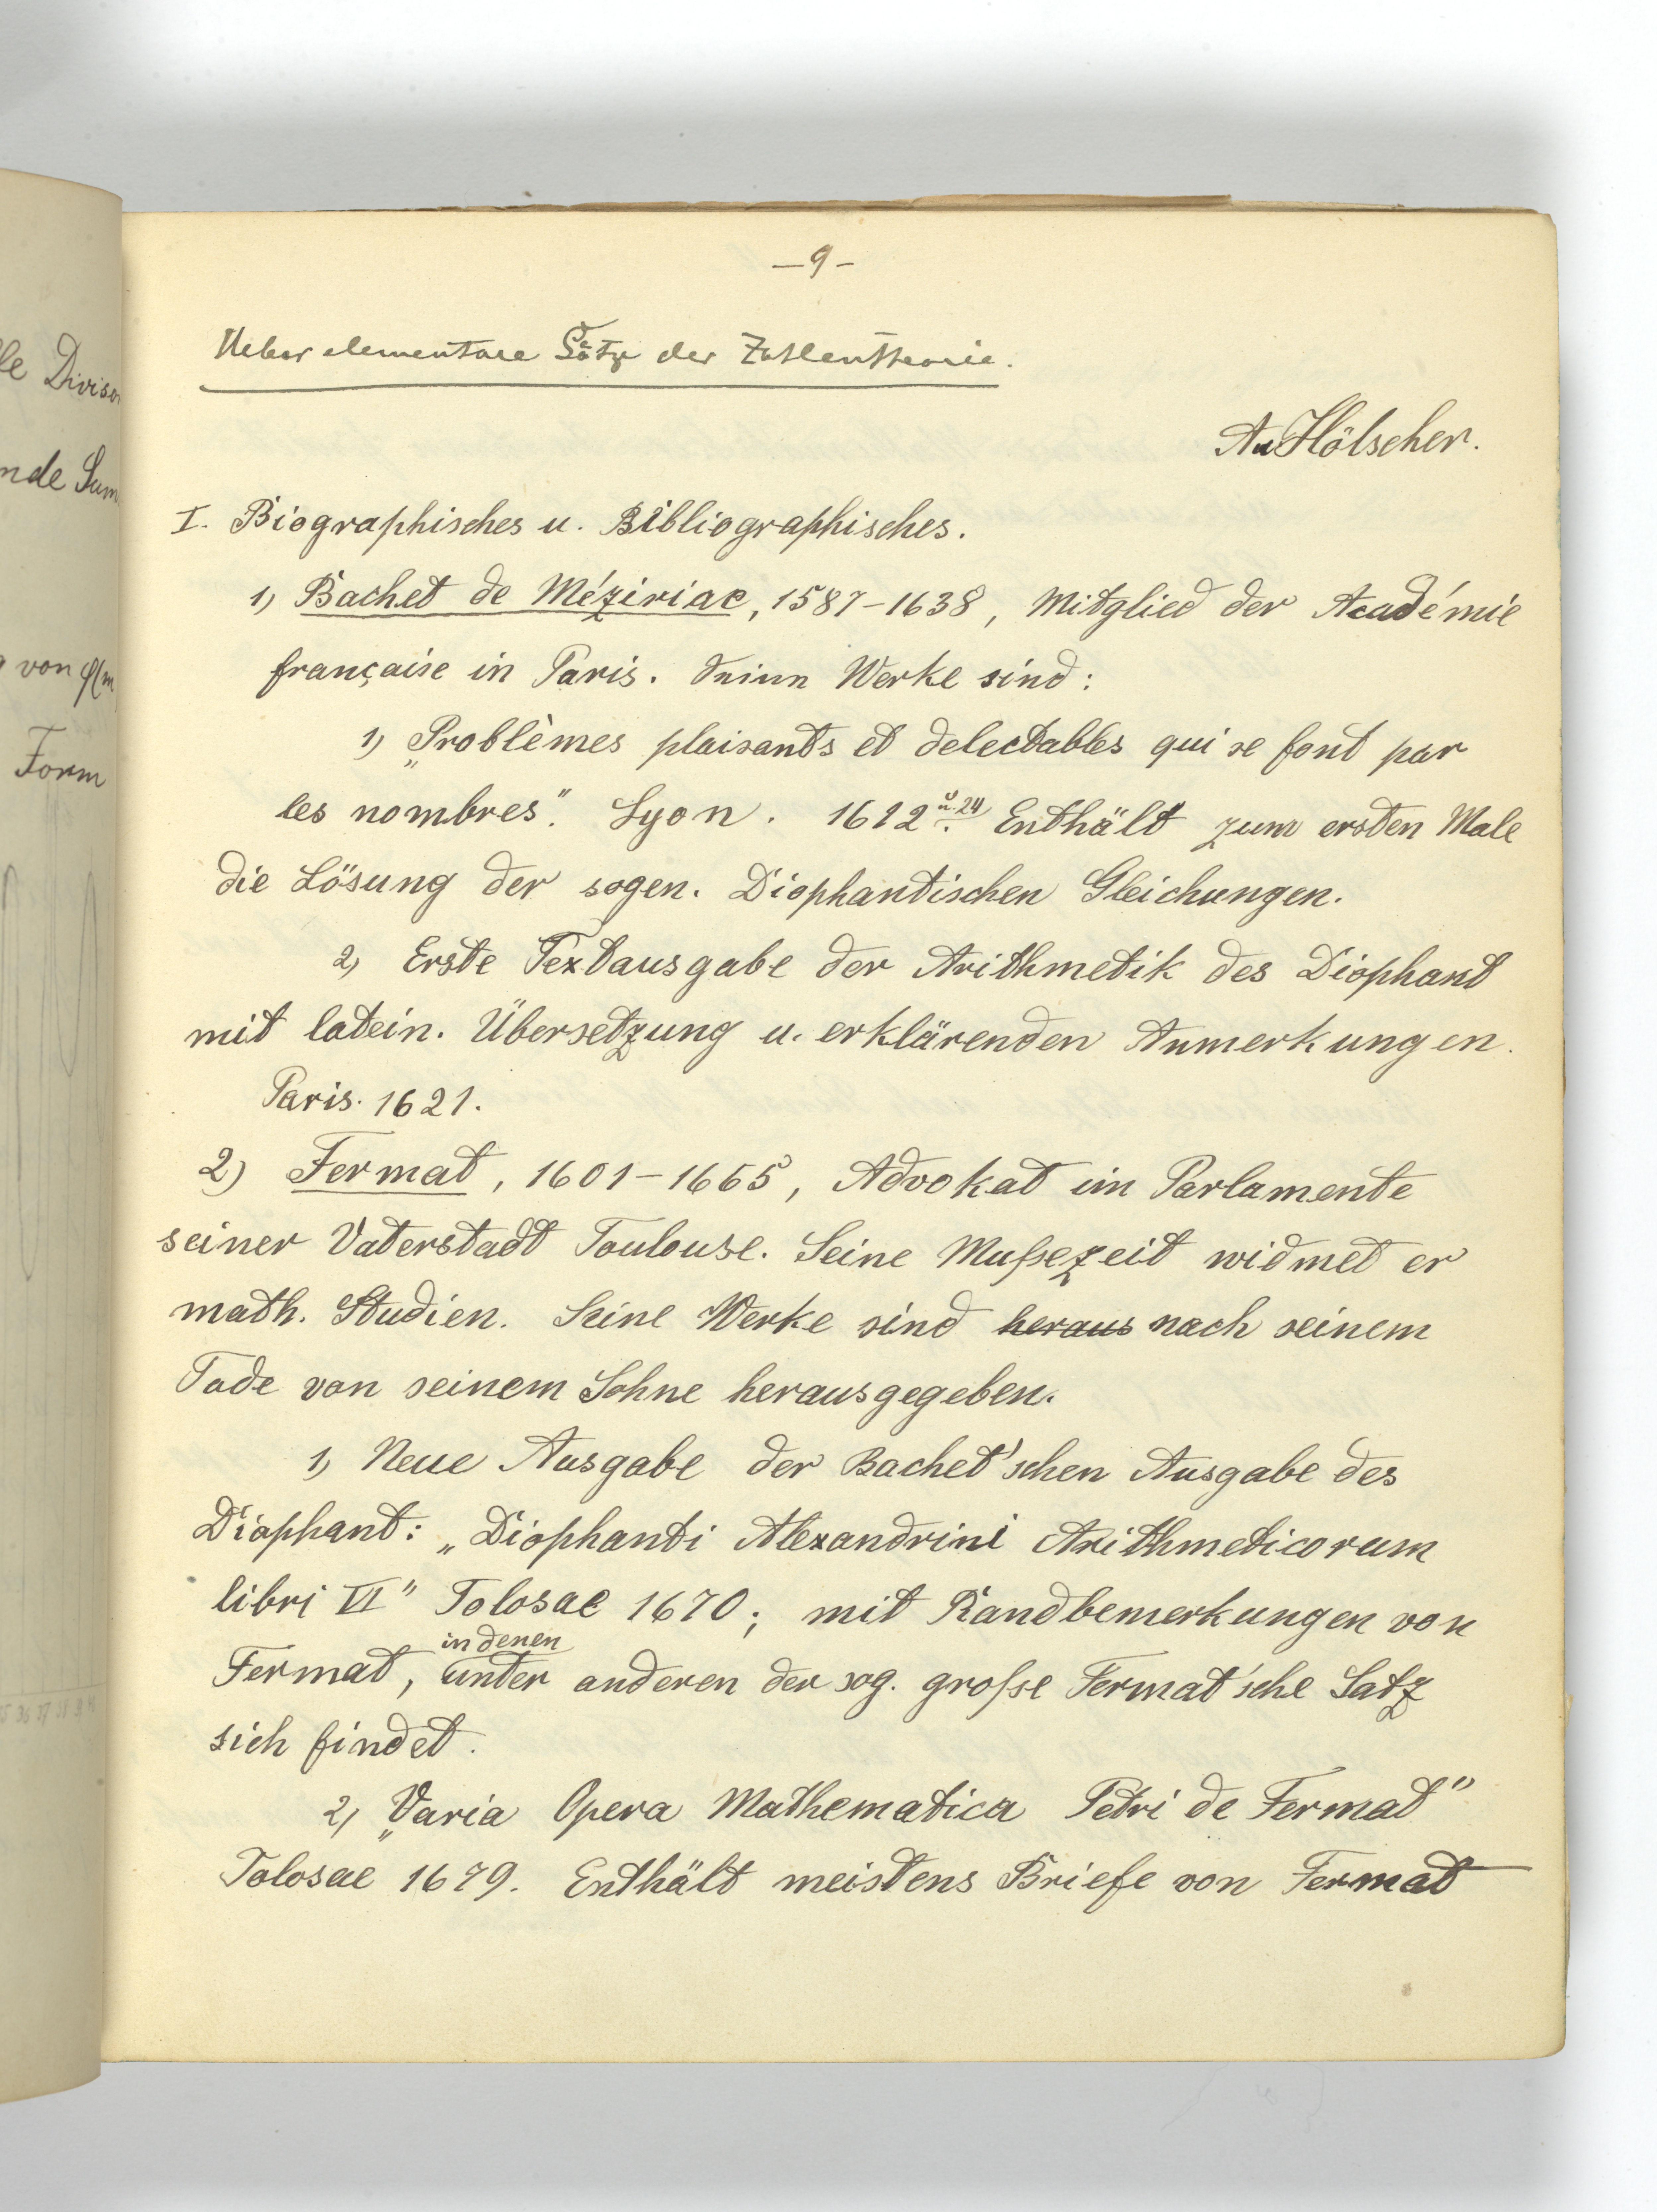 le Divisor
nde Sum
von φ(m
Form
—9—
Ueber elementare Sätze der Zahlentheorie.
Au Hölscher.
I. Biographisches u. Bibliographisches.
1) Bachet de Méziriac, 1587–1638, Mitglied der Académie
française in Paris. Seine Werke sind:
1) „Problèmes plaisants et delectables qui se font par
les nombres". Lyon. 1612 u. 24. Enthält zum ersten Male
die Lösung der sogen. Diophantischen Gleichungen.
2) Erste Textausgabe der Arithmetik des Diophant
mit latein. Übersetzung u. erklärenden Anmerkungen.
Paris. 1621.
2) Fermat, 1601–1665, Advokat im Parlamente
seiner Vaterstadt Toulouse. Seine Mußezeit widmet er
math. Studien. Seine Werke sind heraus nach seinem
Tode von seinem Sohne herausgegeben.
1) Neue Ausgabe der Bachet'schen Ausgabe des
Diophant: „Diophanti Alexandrini Arithmeticorum
libri VI" Tolosae 1670; mit Randbemerkungen von
Fermat, in denen unter anderen der sog. große Fermat'sche Satz
sich findet.
2) „Varia Opera Mathematica Petri de Fermat"
Tolosae 1679. Enthält meistens Briefe von Fermat